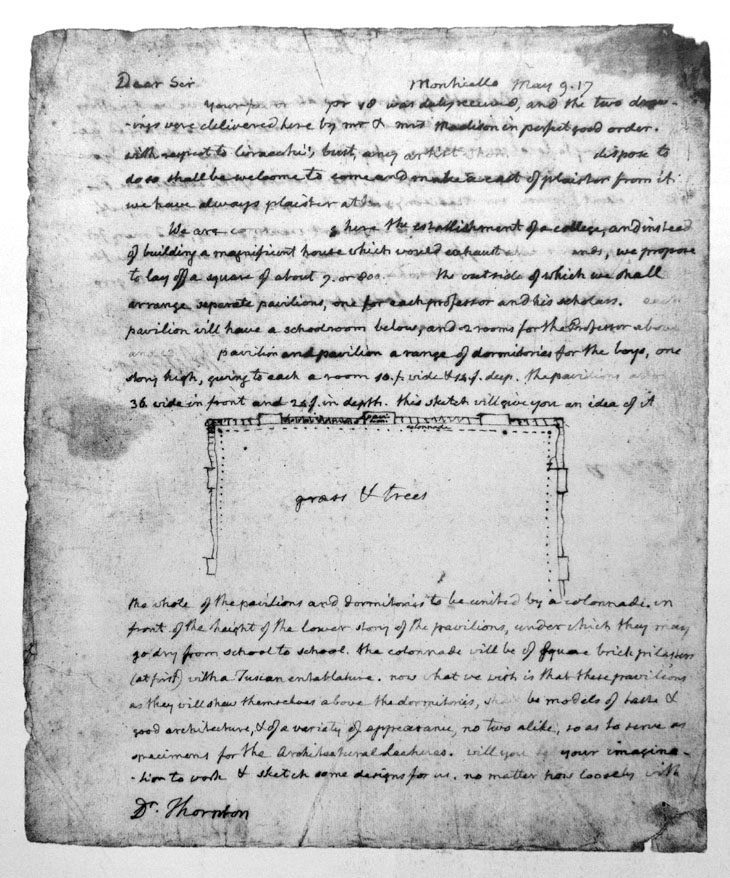 Dear Sir Monticello May 9. 17
Your of 18 was duly received, and the two draw-
-ings were delivered here by mr & mrs Madison in perfect good order.
with respect to Ceracchi's bust, any artist dispose to
do so shall be welcome to come and make a cast of plaister from it.
we have always plaister at
We are here the establishment of a college, and instead
of building a magnificent house which would exhaust , we propose
to lay off a square of about 7. or 800. the outside of which we shall
arrange separate pavilions, one for each professor and his scholars. each
pavilion will have a schoolroom below, and 2 rooms for the Professor above
and pavilion and pavilion a range of dormitories for the boys, one
story high, giving to each a room 10. f. wide & 14 f. deep. the pavilions
36. wide in front and 24. f. in depth. this sketch will give you an idea of it
pavilion
colonnade
grass & trees
the whole of the pavilions and dormitories to be united by a colonnade in
front of the height of the lower story of the pavilions, under which they may
go dry from school to school. the colonnade will be of square brick pilasters
(at first) with a Tuscan entablature. now what we wish is that these pavilions
as they will shew themselves above the dormitories, be models of taste &
good architecture, & of a variety of appearance, no two alike, so as to serve as
specimens for the Architectural lectures. will you your imagina-
-tion to work & sketch some designs for us. no matter how loosely with
Dr. Thornton